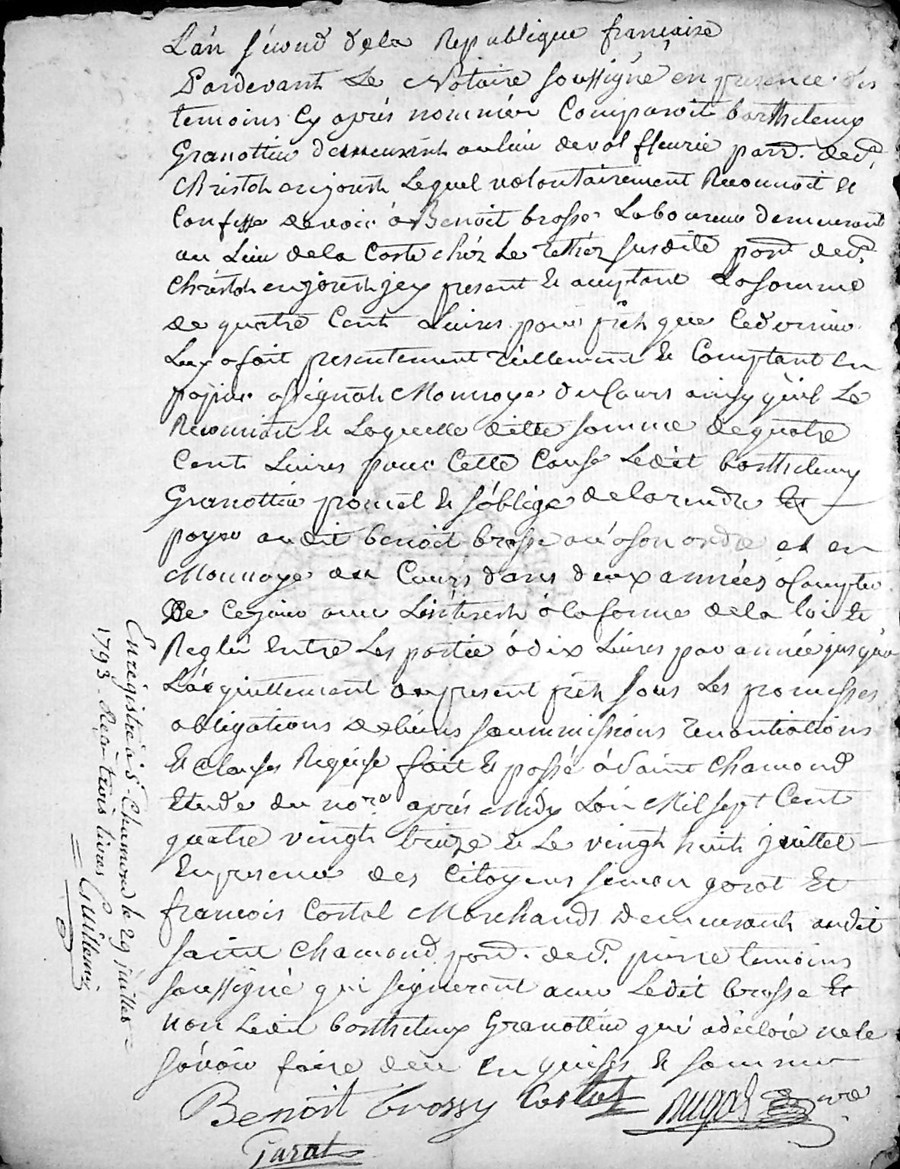 L'an second de la Republique françaire
Pardevant Le Notaire soussigné en presence des
temoins Cy après nommés Comparoit barthelemy
Granottier demeurant au lieu de val fleurie parr. de St.
Christoh en jarest Lequel volontairement Reconnoit et
Confesse devoir à Benoit brosse Laboureur demeurant
au Lieu de la Coste chéz Le susdite parr. de St.
Christoh en jaresth jcy present et acceptant La somme
de quatre Cent Livres pour prêt que ce dernier
Luy a fait presentement réellement et Comptant en
papier assignats Monnoye du Cours ainsy qu'il Le
Reconnoit et Laquelle ditte somme de quatre
Cent Livres pour Cette Cause Ledit barthelemy
Granottier promet et s'oblige de la rendre et
payer audit benoit brosse ou à son ordre et en
Monnoye au Cours dans deux années à Compter
De ce jour avec L'intéresth à la forme de la loi et
Reglés Entre Les parties à dix Livres par année jusqu'a
L'acquittement du present prêt sous Les promesses
obligations de biens soummissions renontiations
et clauses Requise fait et passé à Saint chamond
Etude du nore. après Midy L'an Mil sept Cent
quatre vingt treize et Le vingt huit juillet
En presence des Citoyens simon garat Et
francois Costal Marchands demeurants audit
saint chamond parr. de St. pierre temoins
soussigné qui signeront avec Ledit brosse et
non Ledit barthelemy Granottier qui a déclaré ne le
sávoir faire de ce Enquis et sommé
Benoit brossy Costal Dugas nre
Garat
Enregistré à St. Chamond le 29 juillet
1793. Reçu trois livres Guillemin